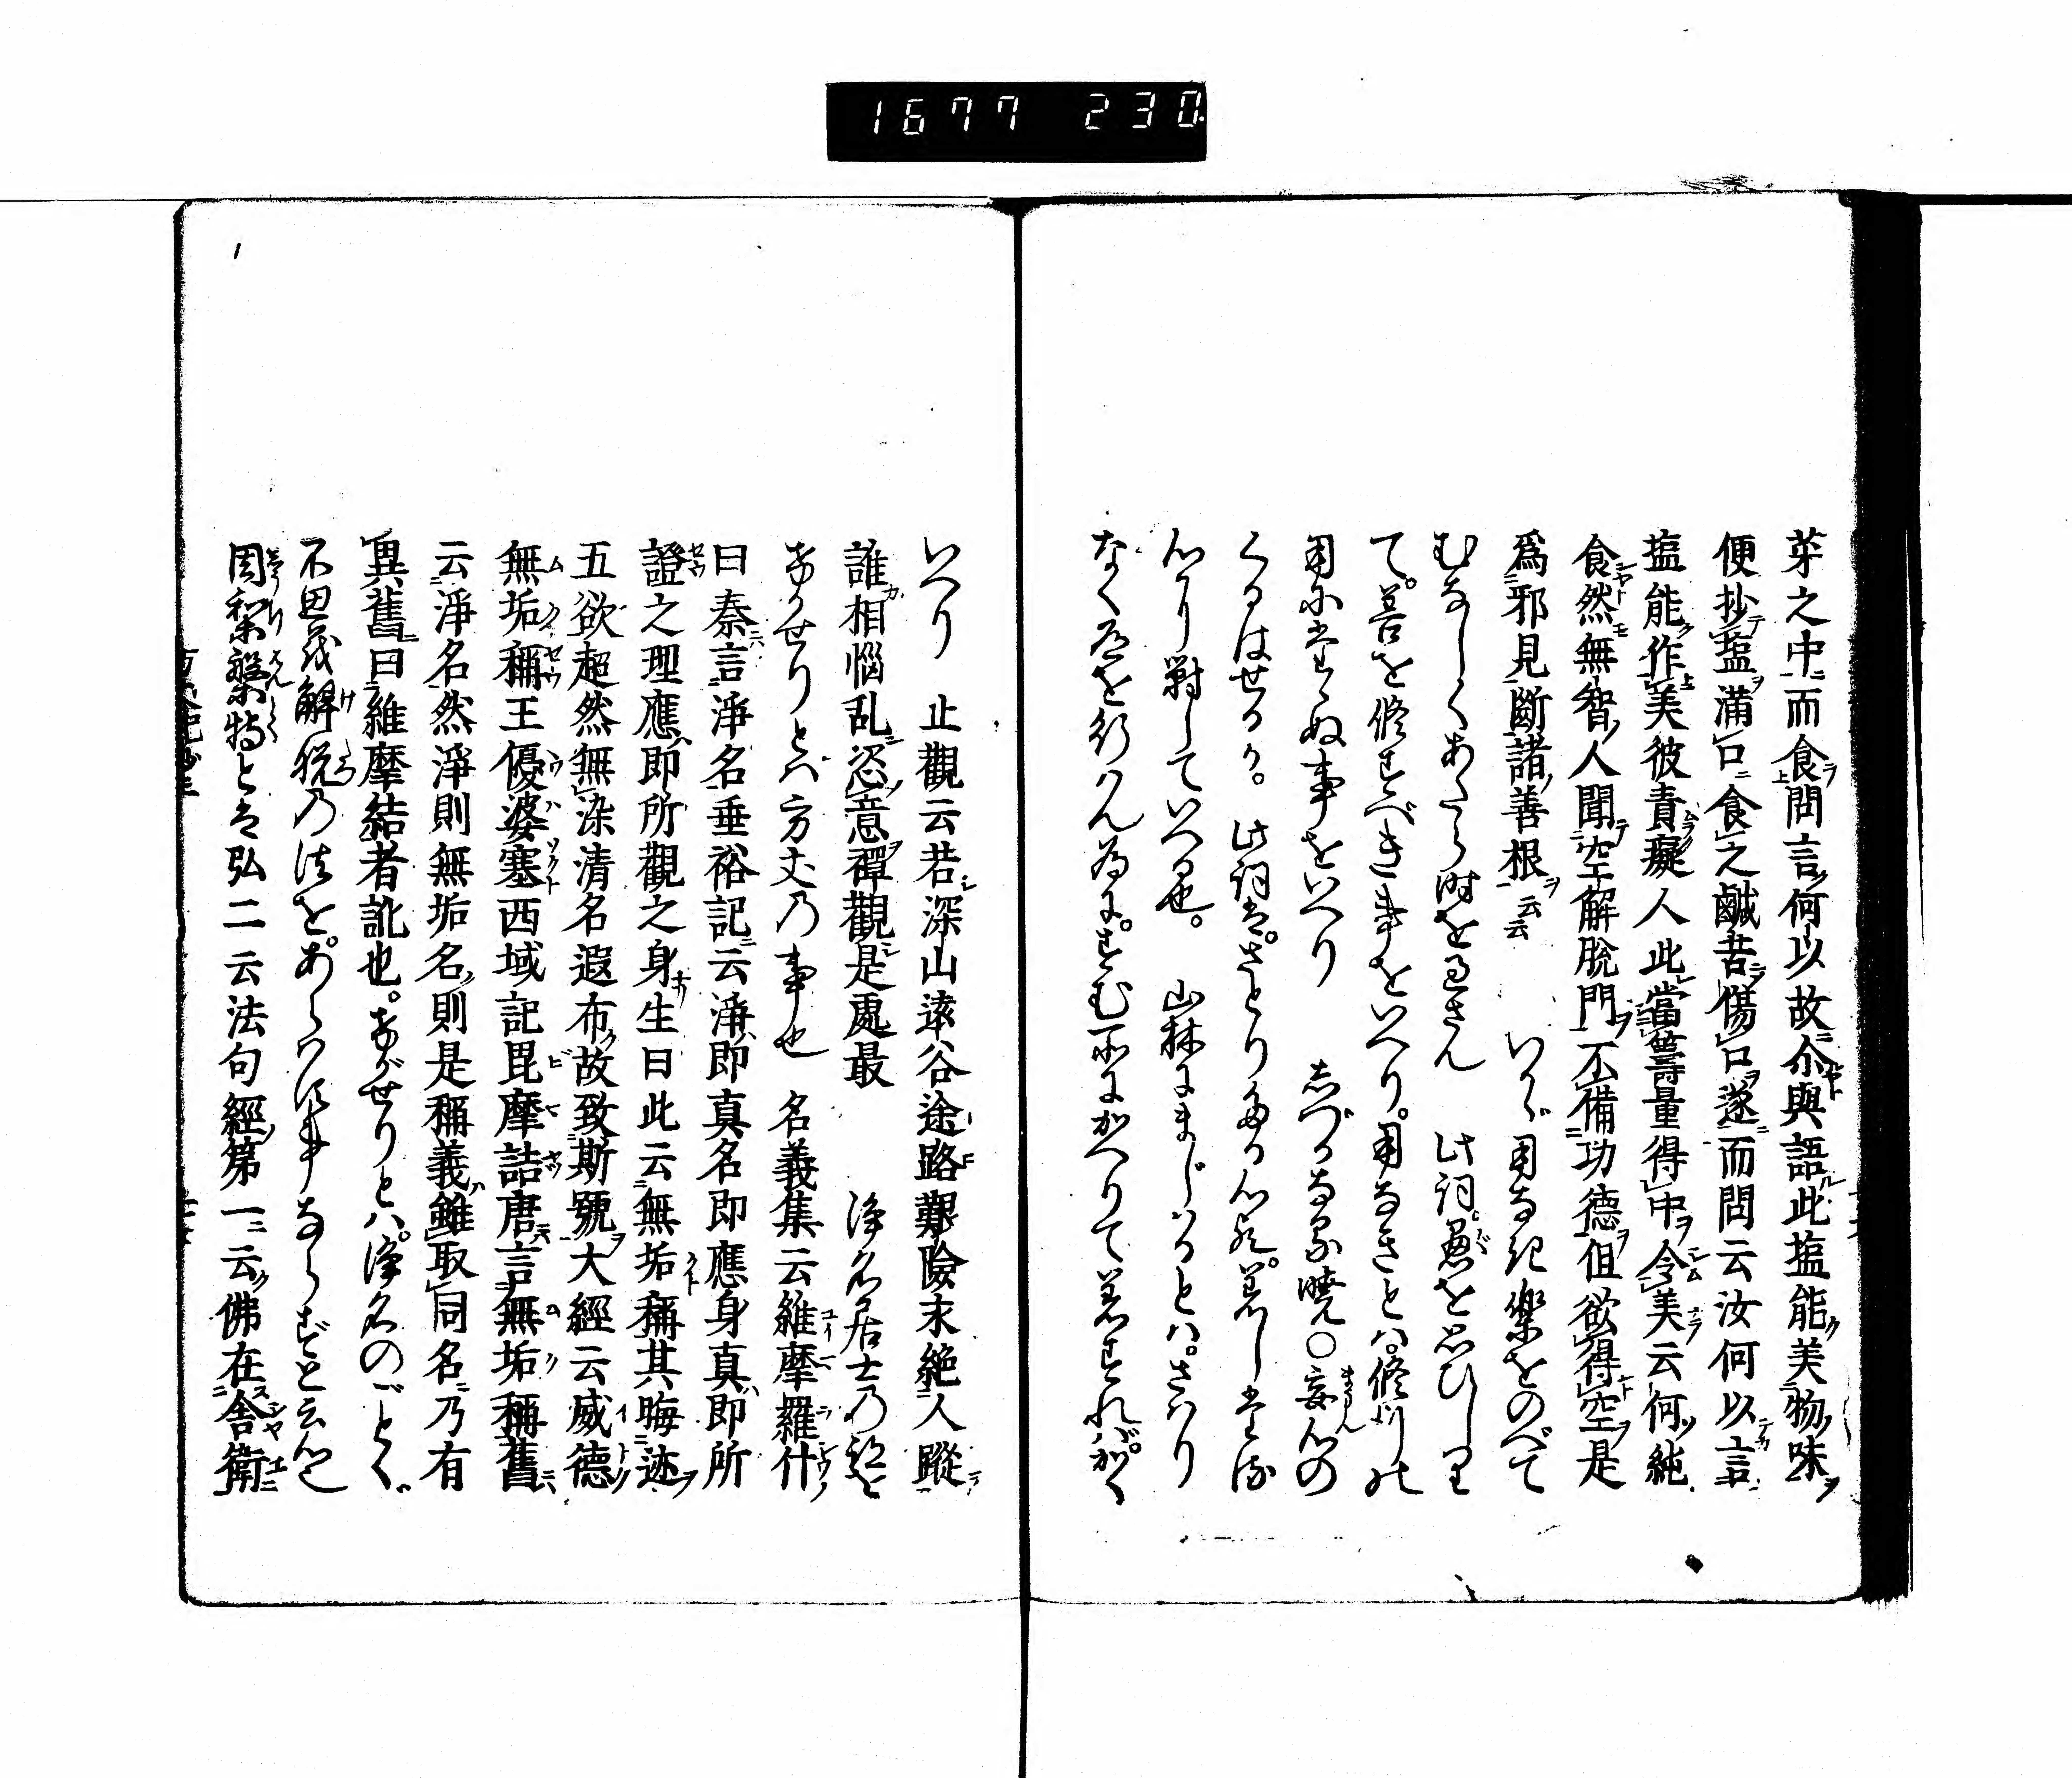 1677 230
菜之中而食問言何以故尒與語此塩能美物味
便抄塩滿口食之鹹苦傷口遂而問云汝何以言
塩能作美彼責癡人此當籌量得中令美云何純
食然無智人聞空解脫門不備功德但欲得空是
爲邪見斷諸善根云云　いかゞ用なき楽をのべて
むなしくあたら時を過さん　此詞愚を思ひしりて
て。善を修すべき事をいへり。用なきとハ。修行の
用にあらぬ事をいへり　しづかなる暁〇妄心の
くるはせるか。此詞は。さとりたる心死。若し
心り対していへる也。　山林にまじハるとハ。さハり
なく道を行ハん為に。すむ所にかへりて若すれバ。かく
いへり　止觀云若深山遠谷途路艱險末絶人蹤
誰相惱乱恣意禪觀是處最　淨名居士の跡を
けがせりとハ方丈の事也　名義集云維摩羅什
曰秦言淨名垂裕記云淨即真名即應身真即所
證之理應即所觀之身生曰此云無垢稱其晦迹
五欲超然無染清名遐布故致斯號大經云威德
無垢稱王優婆塞西域記毘摩詰唐言無垢稱舊
云淨名然淨則無垢名則是稱義雖取同名乃有
異舊曰維摩結者訛也。けがせりとハ。淨名のごとく
不思議解脱の法を。あらハす事ならずと云心也
周梨槃特とは弘二云法句經第一云佛在舎衛